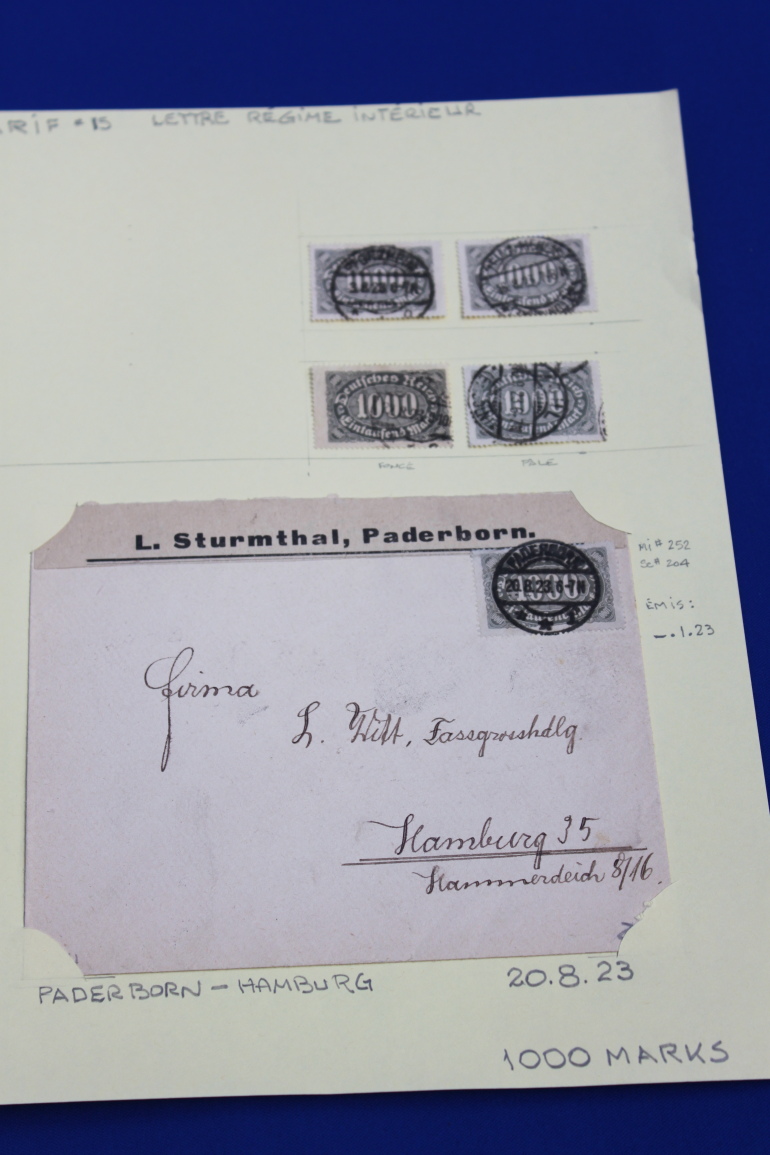 RIF #15 LETTRE RÉGIME INTÉRIEUR
3.8.23.6-7N
1000
Deutsches Reich
1000
Eintausend Mark
FONCÉ PALE
L. Sturmthal, Paderborn.
Mi# 252
Sc# 204
PADERBORN
20.8.23.6-7N
1000
ÉMIS:
–.1.23
Firma
L. Witt, Fassgrosshdlg.
Hamburg 35
Hammerdeich 8/16.
PADERBORN – HAMBURG 20.8.23
1000 MARKS